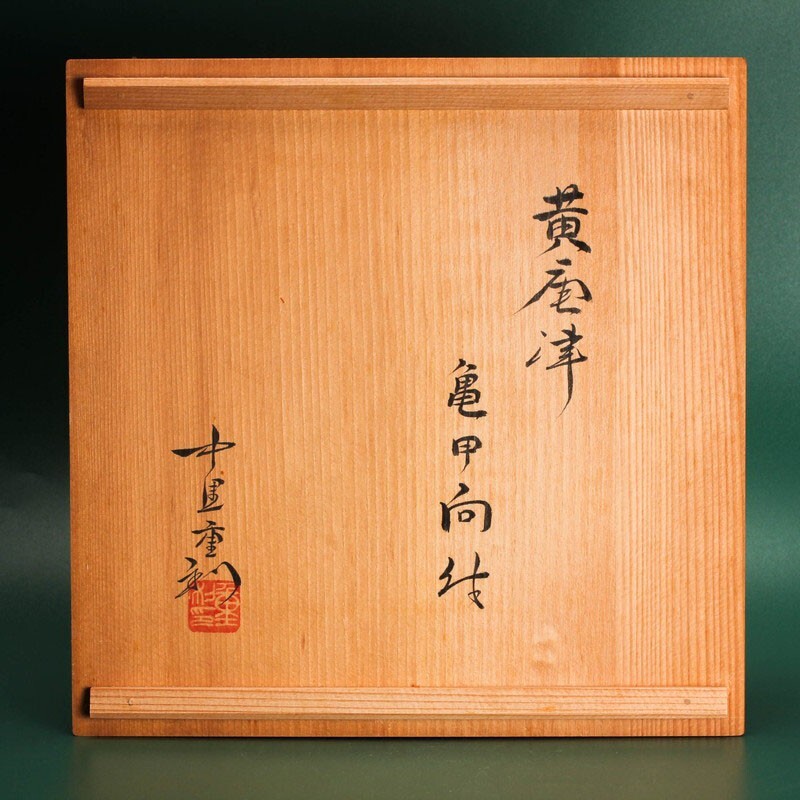 黄唐津
亀甲向付
中里重利